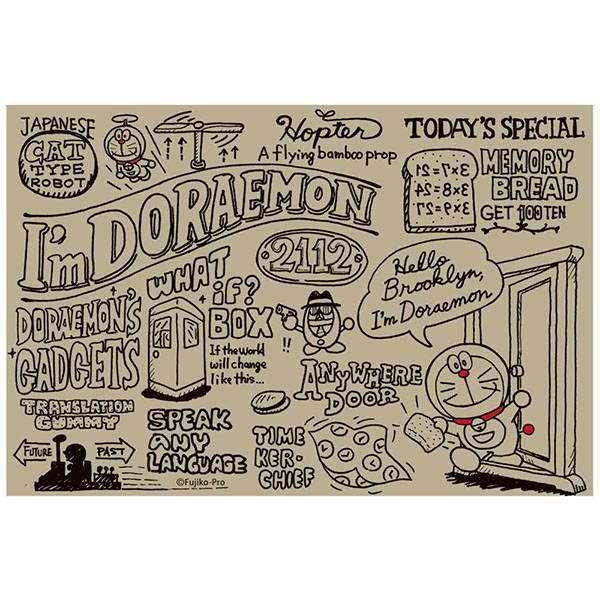 JAPANESE
CAT
TYPE
ROBOT
Hopter
A flying bamboo prop
TODAY'S SPECIAL
3×7=21
3×8=24
3×9=27
MEMORY
BREAD
GET 100TEN
I'm DORAEMON
2112
Hello
Brooklyn,
I'm Doraemon
DORAEMON'S
GADGETS
WHAT
iF?
BOX
If the world
will change
like this...
!!
ANYWHERE
DOOR
TRANSLATION
GUMMY
SPEAK
ANY
LANGUAGE
TIME
KER-
CHIEF
FUTURE
PAST
©Fujiko-Pro